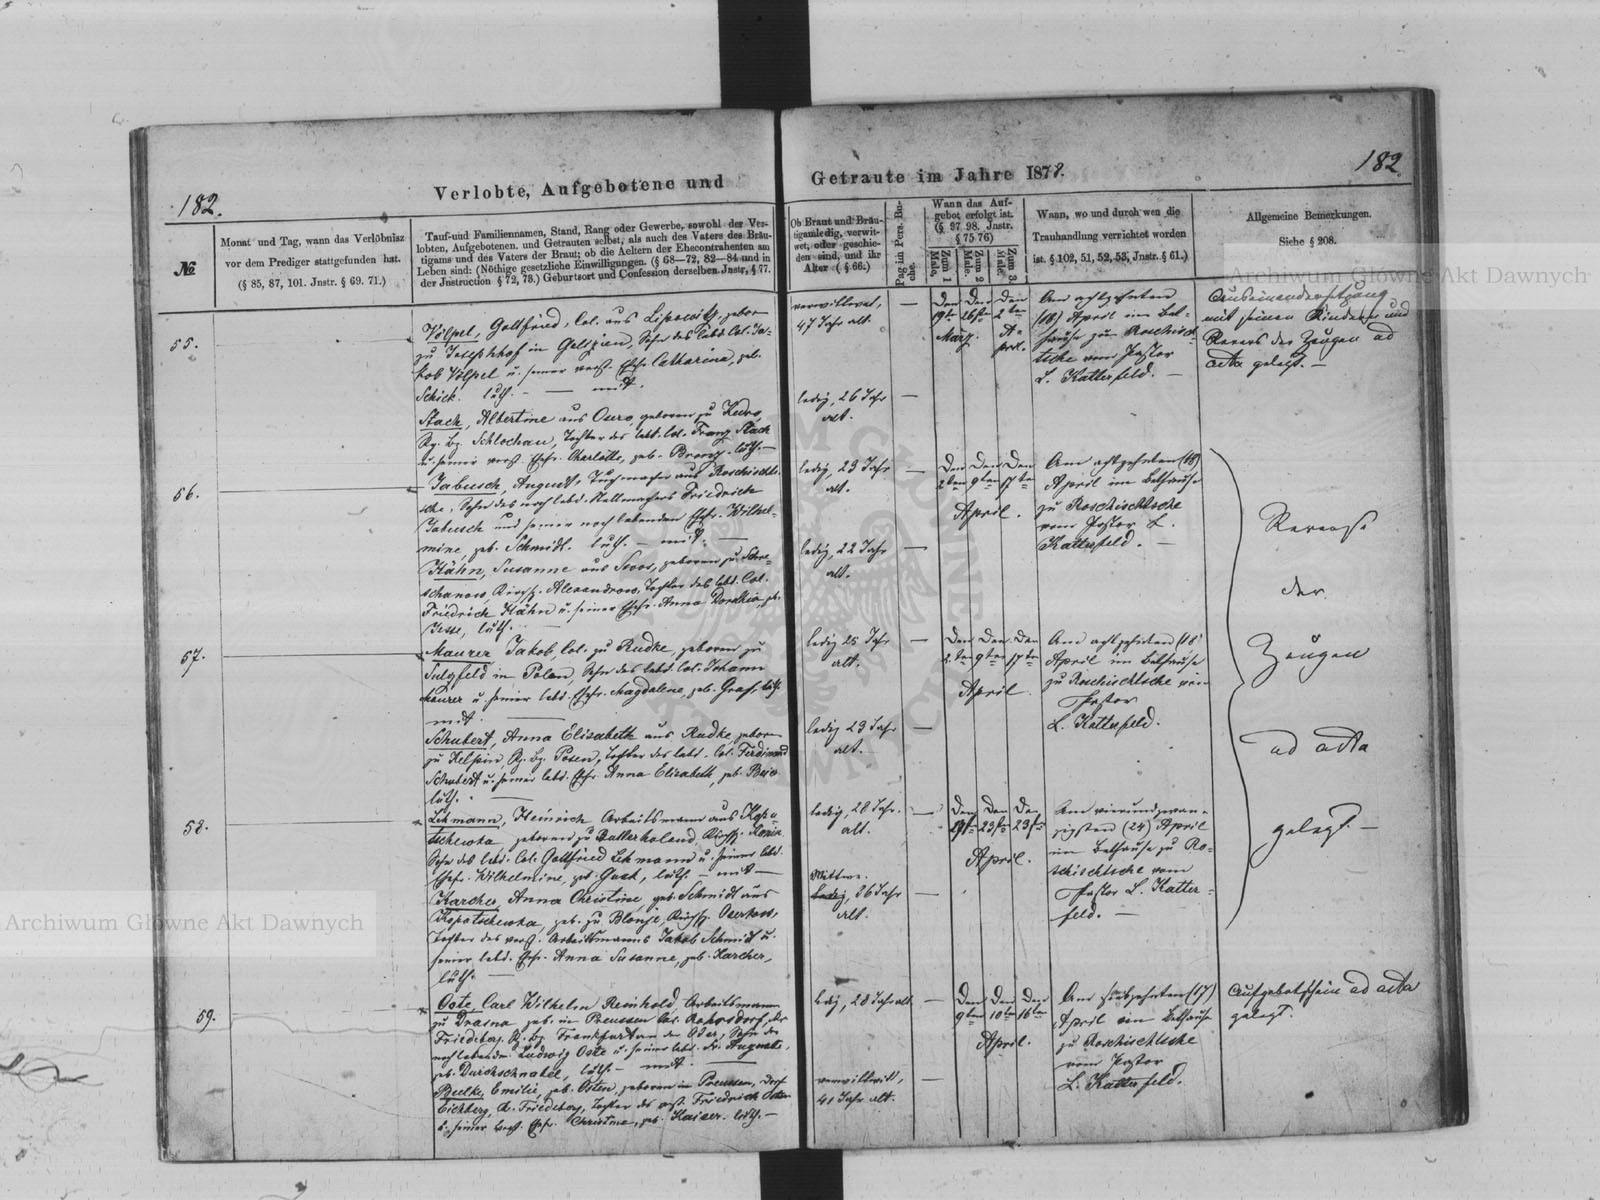 182.
Verlobte, Aufgebotene und
Getraute im Jahre 1878.
182
№
Monat und Tag, wann das Verlöbnisz
vor dem Prediger stattgefunden hat.
(§ 85, 87, 101. Jnstr. § 69. 71.)
Tauf-und Familiennamen, Stand, Rang oder Gewerbe, sowohl der Ver-
lobten, Aufgebotenen und Getrauten selbst, als auch des Vaters des Bräu-
tigams und des Vaters der Braut; ob die Aeltern der Ehecontrahenten am
Leben sind: (Nöthige gesetzliche Einwilligungen. (§ 68—72, 82—84 und in
der Jnstruction § 72, 73.) Geburtsort und Confession derselben. Jnstr. § 77.
Ob Braut und Bräu-
tigam ledig, verwit-
wet, oder geschie-
den sind, und ihr
Alter (§ 66.)
Pag im Pers. Bu-
che.
Wann das Auf-
gebot erfolgt ist.
(§ 97 98. Jnstr.
§ 75 76)
Zum 1
Male.
Zum 2
Male.
Zum 3
Male.
Wann, wo und durch wen die
Trauhandlung verrichtet worden
ist. § 102, 51, 52, 53, Jnstr. § 61.)
Allgemeine Bemerkungen.
Siehe § 208.
55.
Völpel, Gottfried, Col. aus Lipowitz, gebor.
zu Josephhof in Galizien, Sohn des
Völpel u. seiner verst. Ehefr. Catharina, geb.
Schick. luth. — mit
Stach, Albertine aus Ouro, geboren zu
Rg. Bz. Schlochau, Tochter des lebd. Col. Franz Stach
u. seiner verst. Ehefr. Charlotte, geb. luth. —
verwittwet,
47 Jahr alt.
ledig, 26 Jahr
alt.
Den Den Den
19ten 26sten 2ten
März. A-
pril.
Am achtzehnten
(18) April im Bet-
hause zu Roschisch-
tsche vom Pastor
L. Katterfeld. —
Auseinandersetzung
mit seinen Kindern und
Revers der Zeugen ad
acta gelegt. —
56.
Jabusch, August, Tuchmacher aus Roschischt-
sche, Sohn des noch lebd. Stellmachers Friedrich
Jabusch und seiner noch lebenden Ehefr. Wilhel-
mine, geb. Schmidt. luth. — mit. —
Hähn, Susanne aus geboren zu
Kirchsp. Alexandrow, Tochter des lebd. Col.
Friedrich Hähn u. seiner Ehefr. Anna Dorothea, geb.
Jesse, luth.
ledig 23 Jahr
alt.
ledig, 22 Jahr
alt.
Den Den Den
2ten 9ten 17ten
April.
Am achtzehnten (18)
April im Bethause
zu Roschischtsche
vom Pastor L.
Katterfeld. —
Reverse
der
Zeugen
ad acta
gelegt. —
57.
Maurer Jakob, Col. zu Rudke, geboren zu
Sulzfeld in Polen, Sohn des lebd. Col. Johann
Maurer u. seiner lebd. Ehefr. Magdalene, geb. Graf, luth.
mit.
Schubert, Anna Elisabeth aus Rudke, geboren
zu Rg. Bz. Posen, Tochter des lebd. Col. Ferdinand
Schubert u. seiner lebd. Ehefr. Anna Elisabeth, geb.
luth. —
ledig 25 Jahr
alt.
ledig 23 Jahr
alt.
Den Den Den
2ten 9ten 17ten
April.
Am achtzehnten (18)
April im Bethause
zu Roschischtsche vom
Pastor
L. Katterfeld.
58.
Lekmann, Heinrich Arbeitsmann aus Kopa-
tschewka geboren zu Kirchsp. Konin
Sohn des lebd. Col. Gottfried Lekmann u. seiner lebd.
Ehefr. Wilhelmine, geb. luth. — mit —
Karcher, Anna Christine, geb. Schmidt aus
Kopatschewka, geb. zu Kirchsp. Oserkow,
Tochter des verst. Arbeitsmanns Jakob Schmidt u.
seiner lebd. Ehefr. Anna Susanne, geb. Karcher,
luth.
ledig, 28 Jahr.
alt.
Wittwe.
ledig, 36 Jahr
alt.
Den Den Den
April.
Am vierundzwan-
zigsten (24) April
im Bethause zu Ro-
schischtsche vom
Pastor L. Katter-
feld. —
59.
Oste, Carl Wilhelm Reinhold, Arbeitsmann
zu geb. in Preussen
Friedeberg, Rg. Bz. Frankfurt an der Oder, Sohn des
noch lebenden Ludwig Oste u. seiner lebd. Fr. Auguste,
geb. Durchschnabel, luth. — mit.
Emilie, geb. Osten, geboren in Preussen, Dorf
Eichberg, Friedeberg, Tochter des verst. Friedrich Osten
u. seiner verst. Ehefr. Christine, geb. Kaiser. luth. —
ledig, 28 Jahr alt
verwittwet,
41 Jahr alt.
Den Den Den
9ten 10ten 16ten
April.
Am siebzehnten (17)
April im Bethause
zu Roschischtsche
vom Pastor
L. Katterfeld.
Aufgebotschein ad acta
gelegt.
Archiwum Główne Akt Dawnych
Archiwum Główne Akt Dawnych